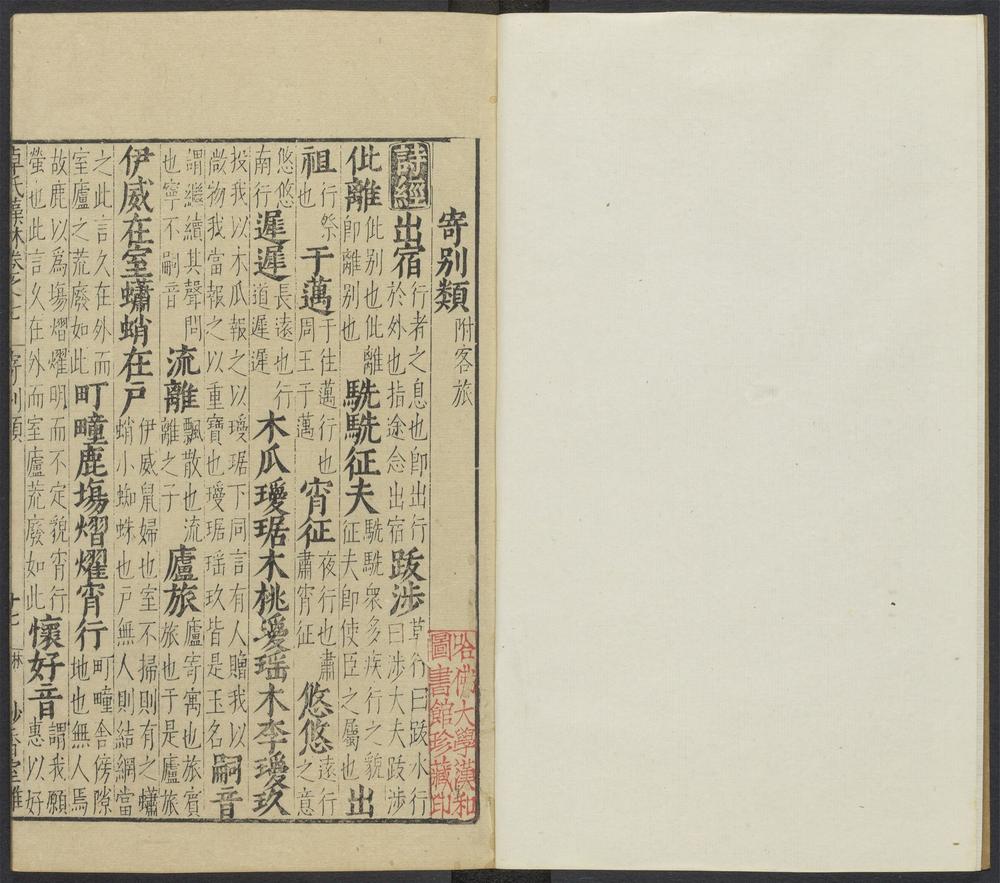 寄別類附客旅
詩經出宿行者之息也卽出行於外也指途念出宿跋涉草行曰跋水行曰涉大夫跋涉
仳離仳別也仳離卽離別也駪駪征夫駪駪衆多疾行之貌征夫卽使臣之屬也出
祖行祭也于邁于往邁行也周王于邁宵征夜行也肅肅宵征悠悠遠行之意
悠悠南行遲遲長遠也行道遲遲木瓜瓊琚木桃瓊瑤木李瓊玖
投我以木瓜報之以瓊琚下同言有人贈我以微物我當報之以重寶也瓊琚瑤玖皆是玉名嗣音
謂繼續其聲問也寧不嗣音流離飄散也流離之子廬旅廬寄寓也旅賓旅也于是廬旅
伊威在室蠨蛸在戶伊威鼠婦也室不掃則有之蠨蛸小蜘蛛也戶無人則結網當
之此言久在外而室廬之荒廢如此町畽鹿場熠燿宵行町畽舍傍隙地也無人焉
故鹿以爲場熠燿明而不定貌宵行螢也此言久在外而室廬荒廢如此懷好音謂我願惠以好
卓氏藻林卷之七 寄別類 十七
哈佛大學漢和
圖書館珍藏印